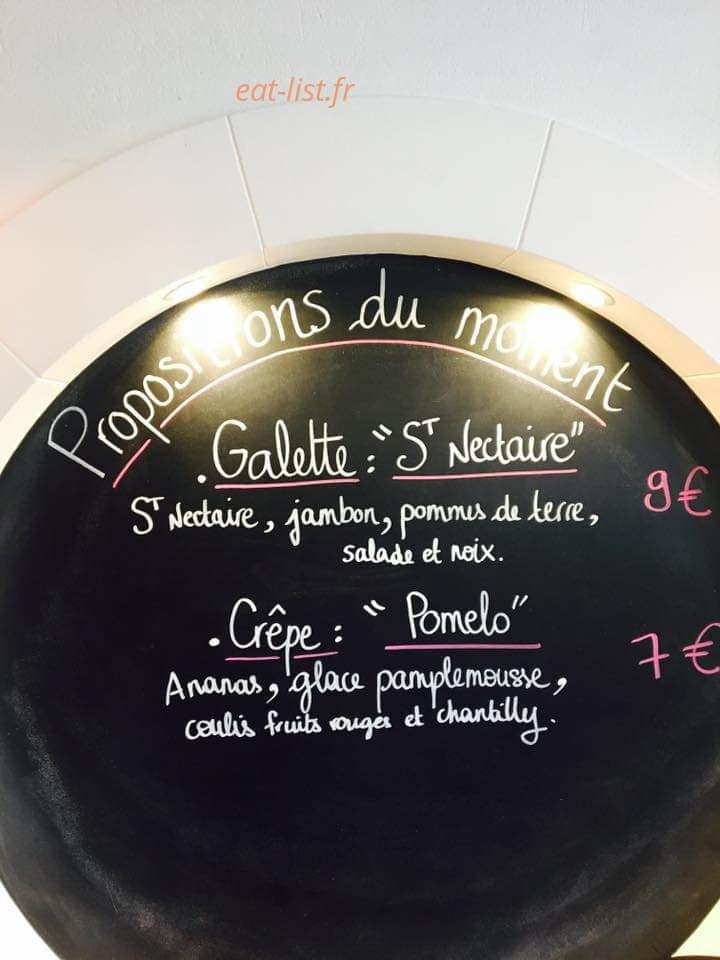 eat-list.fr
Propositions du moment
. Galette : "ST Nectaire"
9€
ST Nectaire, jambon, pommes de terre,
salade et noix.
. Crêpe : "Pomelo"
7€
Ananas, glace pamplemousse,
coulis fruits rouges et chantilly.